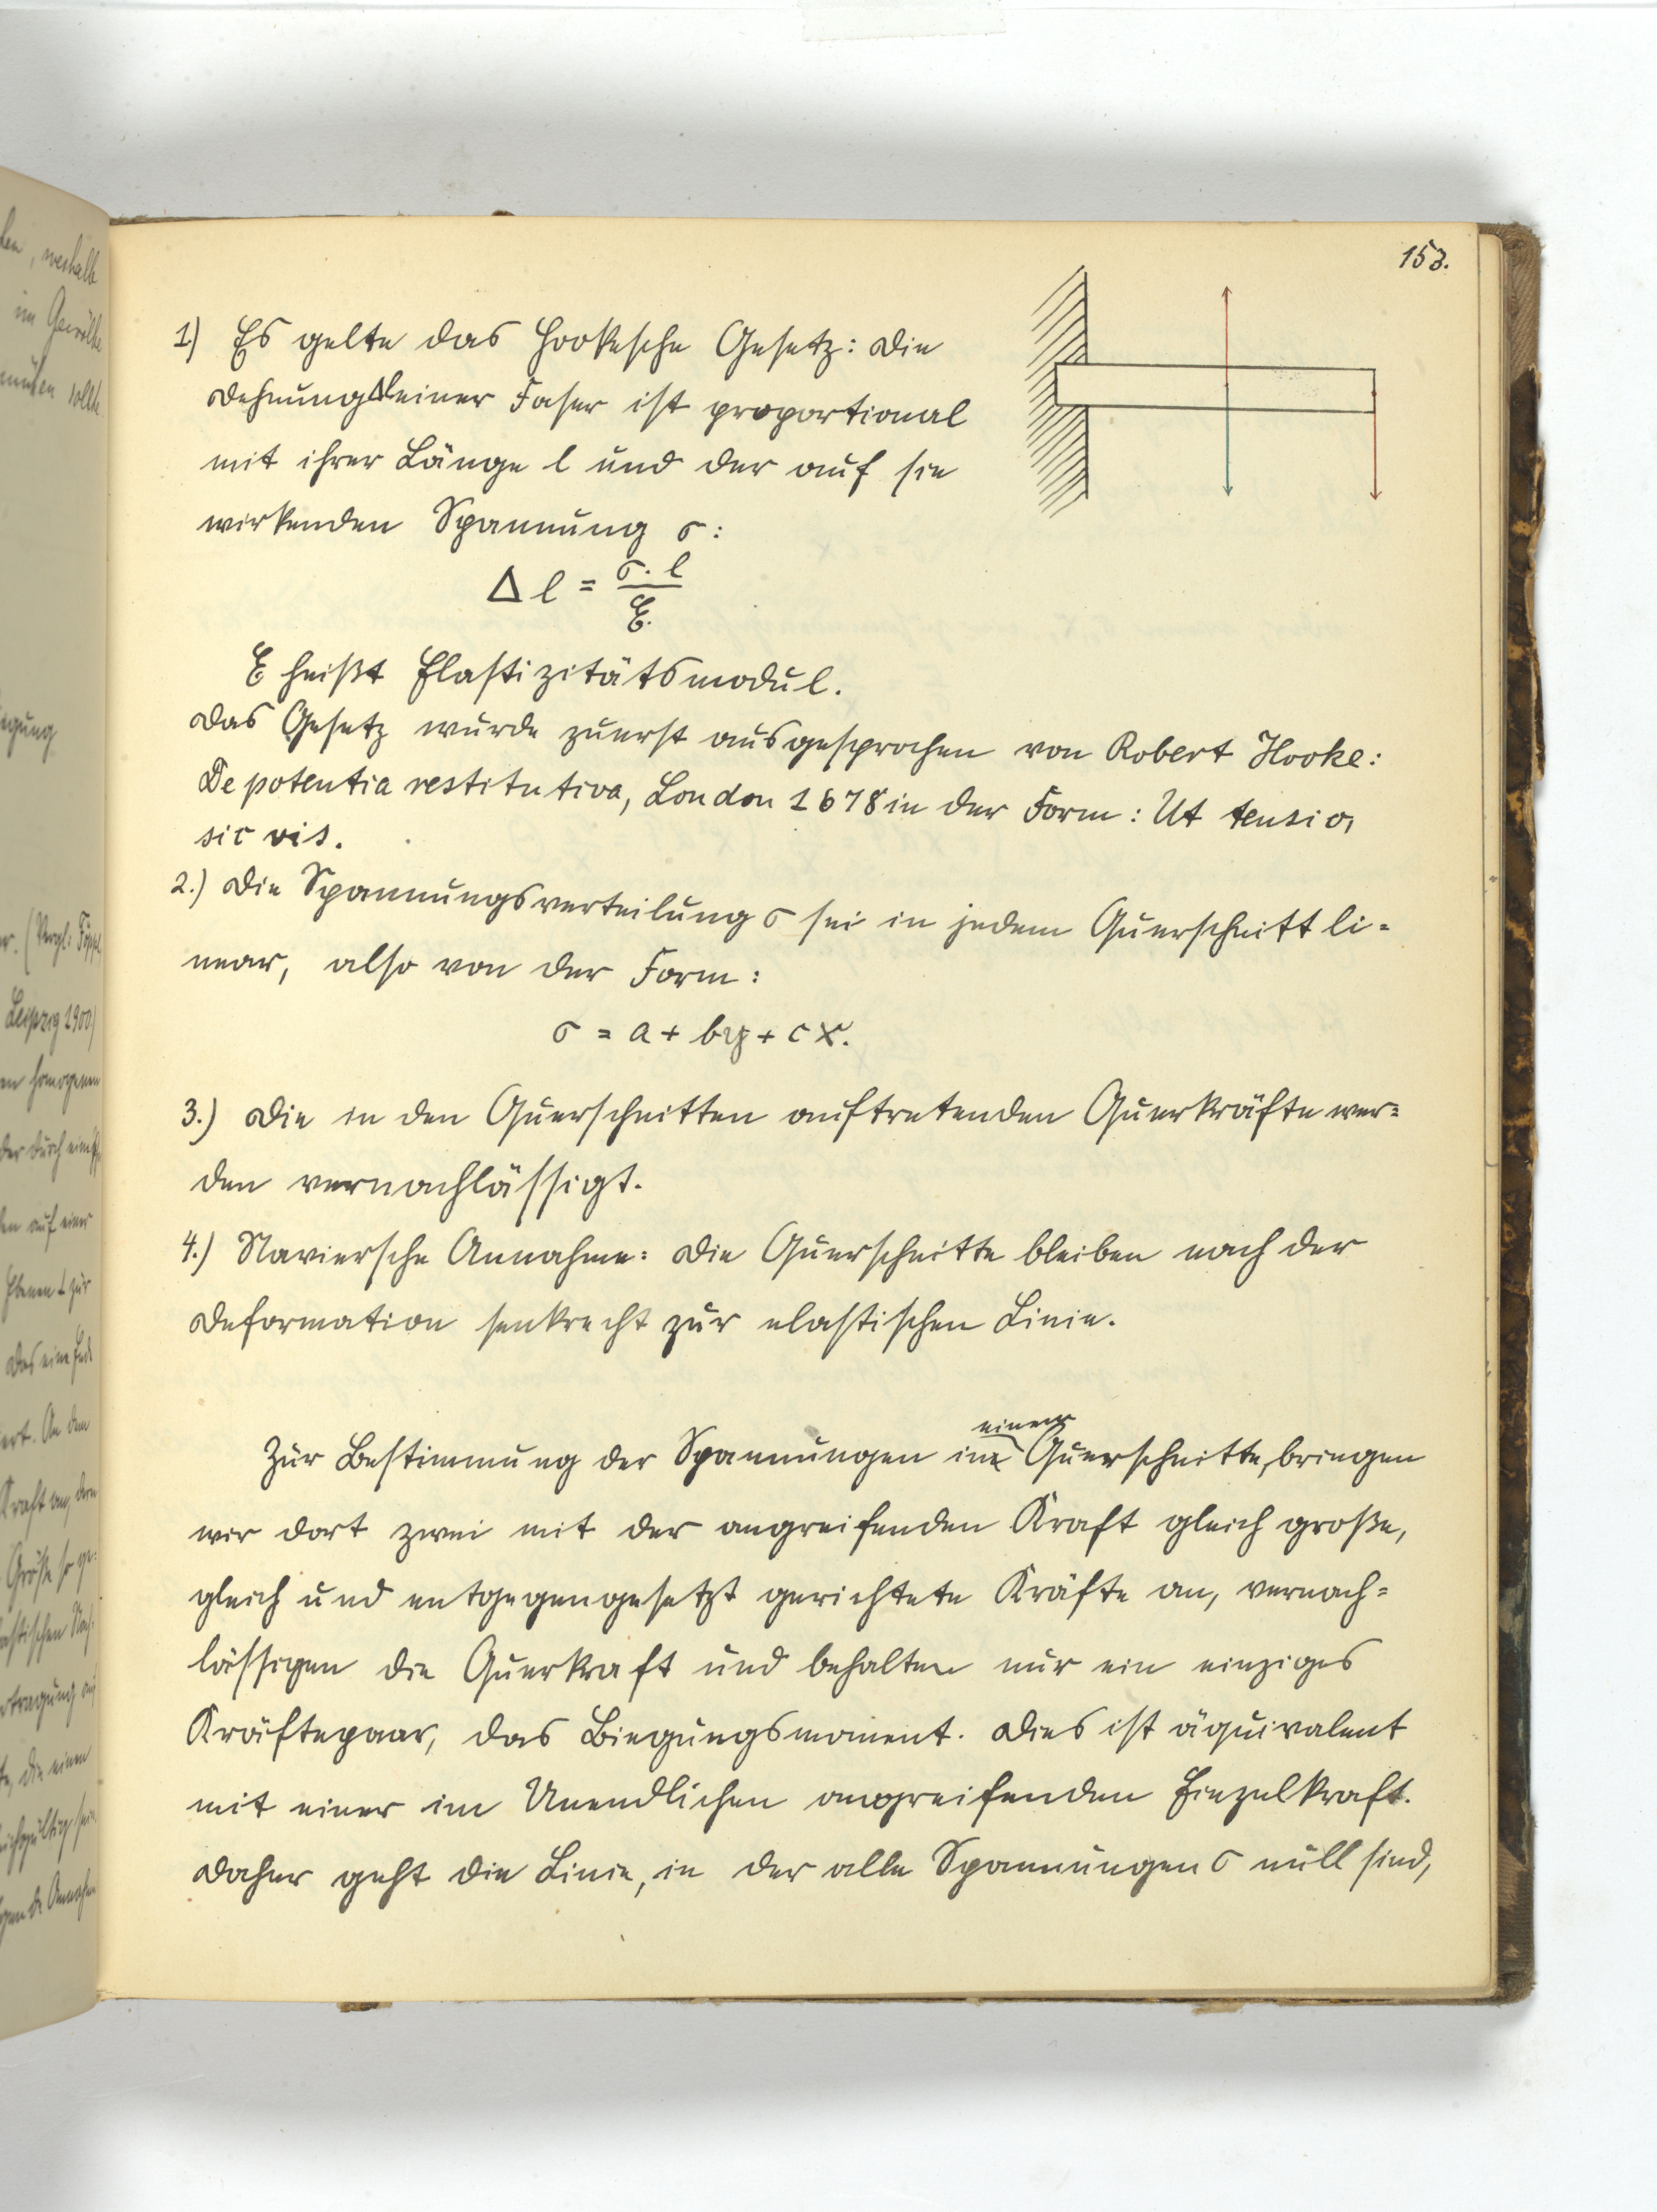 153.
1.) Es gelte das Hookesche Gesetz: Die
Dehnung Δl einer Faser ist proportional
mit ihrer Länge l und der auf sie
wirkenden Spannung σ:
Δl = σ. l / E.
E heißt Elastizitätsmodul.
Das Gesetz wurde zuerst ausgesprochen von Robert Hooke:
De potentia restitutiva, London 1678 in der Form: Ut tensio,
sic vis.
2.) Die Spannungsverteilung σ sei in jedem Querschnitt li=
near, also von der Form:
σ = a + by + cx.
3.) Die in den Querschnitten auftretenden Querkräfte wer=
den vernachlässigt.
4.) Naviersche Annahme: Die Querschnitte bleiben nach der
Deformation senkrecht zur elastischen Linie.
Zur Bestimmung der Spannungen in einem Querschnitte, bringen
wir dort zwei mit der angreifenden Kraft gleich große,
gleich und entgegengesetzt gerichtete Kräfte an, vernach=
lässigen die Querkraft und behalten nur ein einziges
Kräftepaar, das Biegungsmoment. Dies ist äquivalent
mit einer im Unendlichen angreifenden Einzelkraft.
Daher geht die Linie, in der alle Spannungen σ null sind,